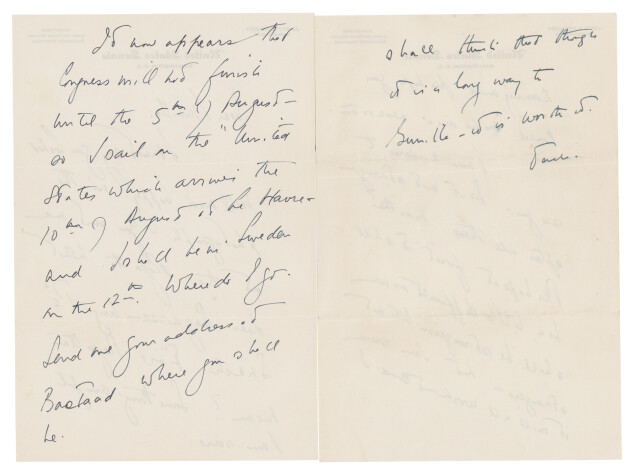 It now appears that
Congress will not finish
until the 5th of August -
so I sail on the "United
States which arrives the
10th of August at Le Havre -
and I shall be in Sweden
on the 12th. Where do I go.
Send me your address at
Bastaad where you shall
be.
shall think that though
it is a long way to
Gunilla - it is worth it.
Jack.